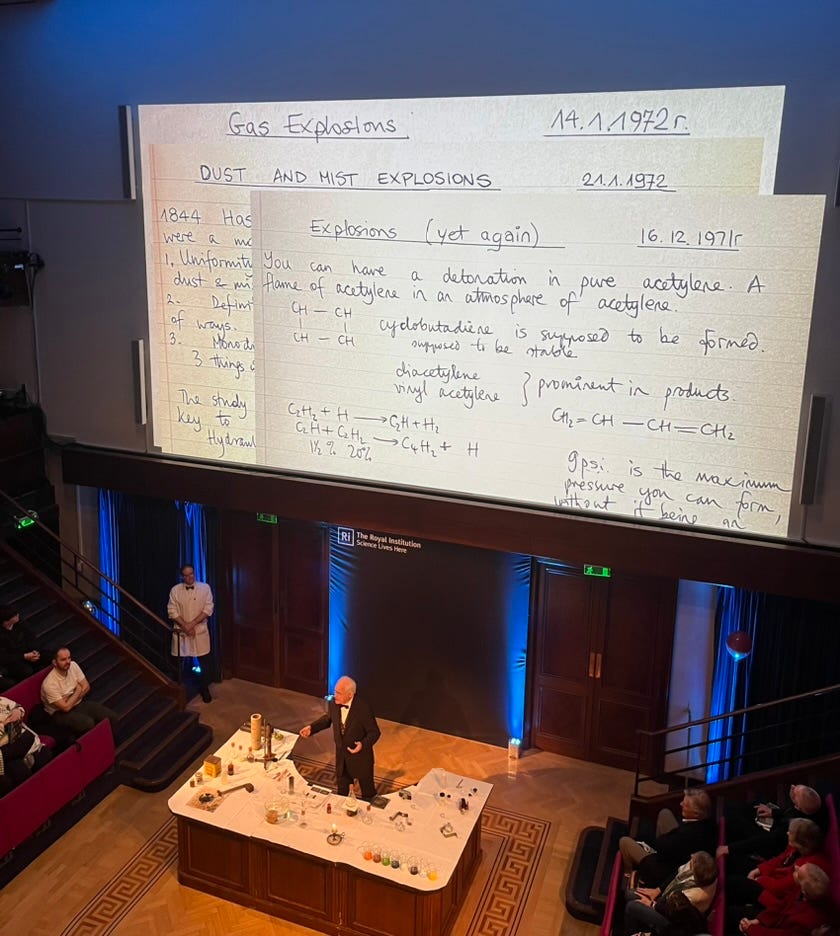 Gas Explosions 14.1.1972r.
DUST AND MIST EXPLOSIONS 21.1.1972
1844 Has
were a
1. Uniformity
dust & mi
2. Defini
of ways.
3. Mono di
3 things
The study
key to
Hydraul
Explosions (yet again) 16.12.1971r
You can have a detonation in pure acetylene. A
flame of acetylene in an atmosphere of acetylene.
CH — CH
CH — CH
cyclobutadiene is supposed to be formed.
supposed to be stable
diacetylene
vinyl acetylene } prominent in products.
C₂H₂ + H → C₂H + H₂
C₂H + C₂H₂ → C₄H₂ + H
1½ % 20%
CH₂=CH—CH=CH₂
9psi. is the maximum
pressure you can form,
without it being an
Ri The Royal Institution
Science Lives Here